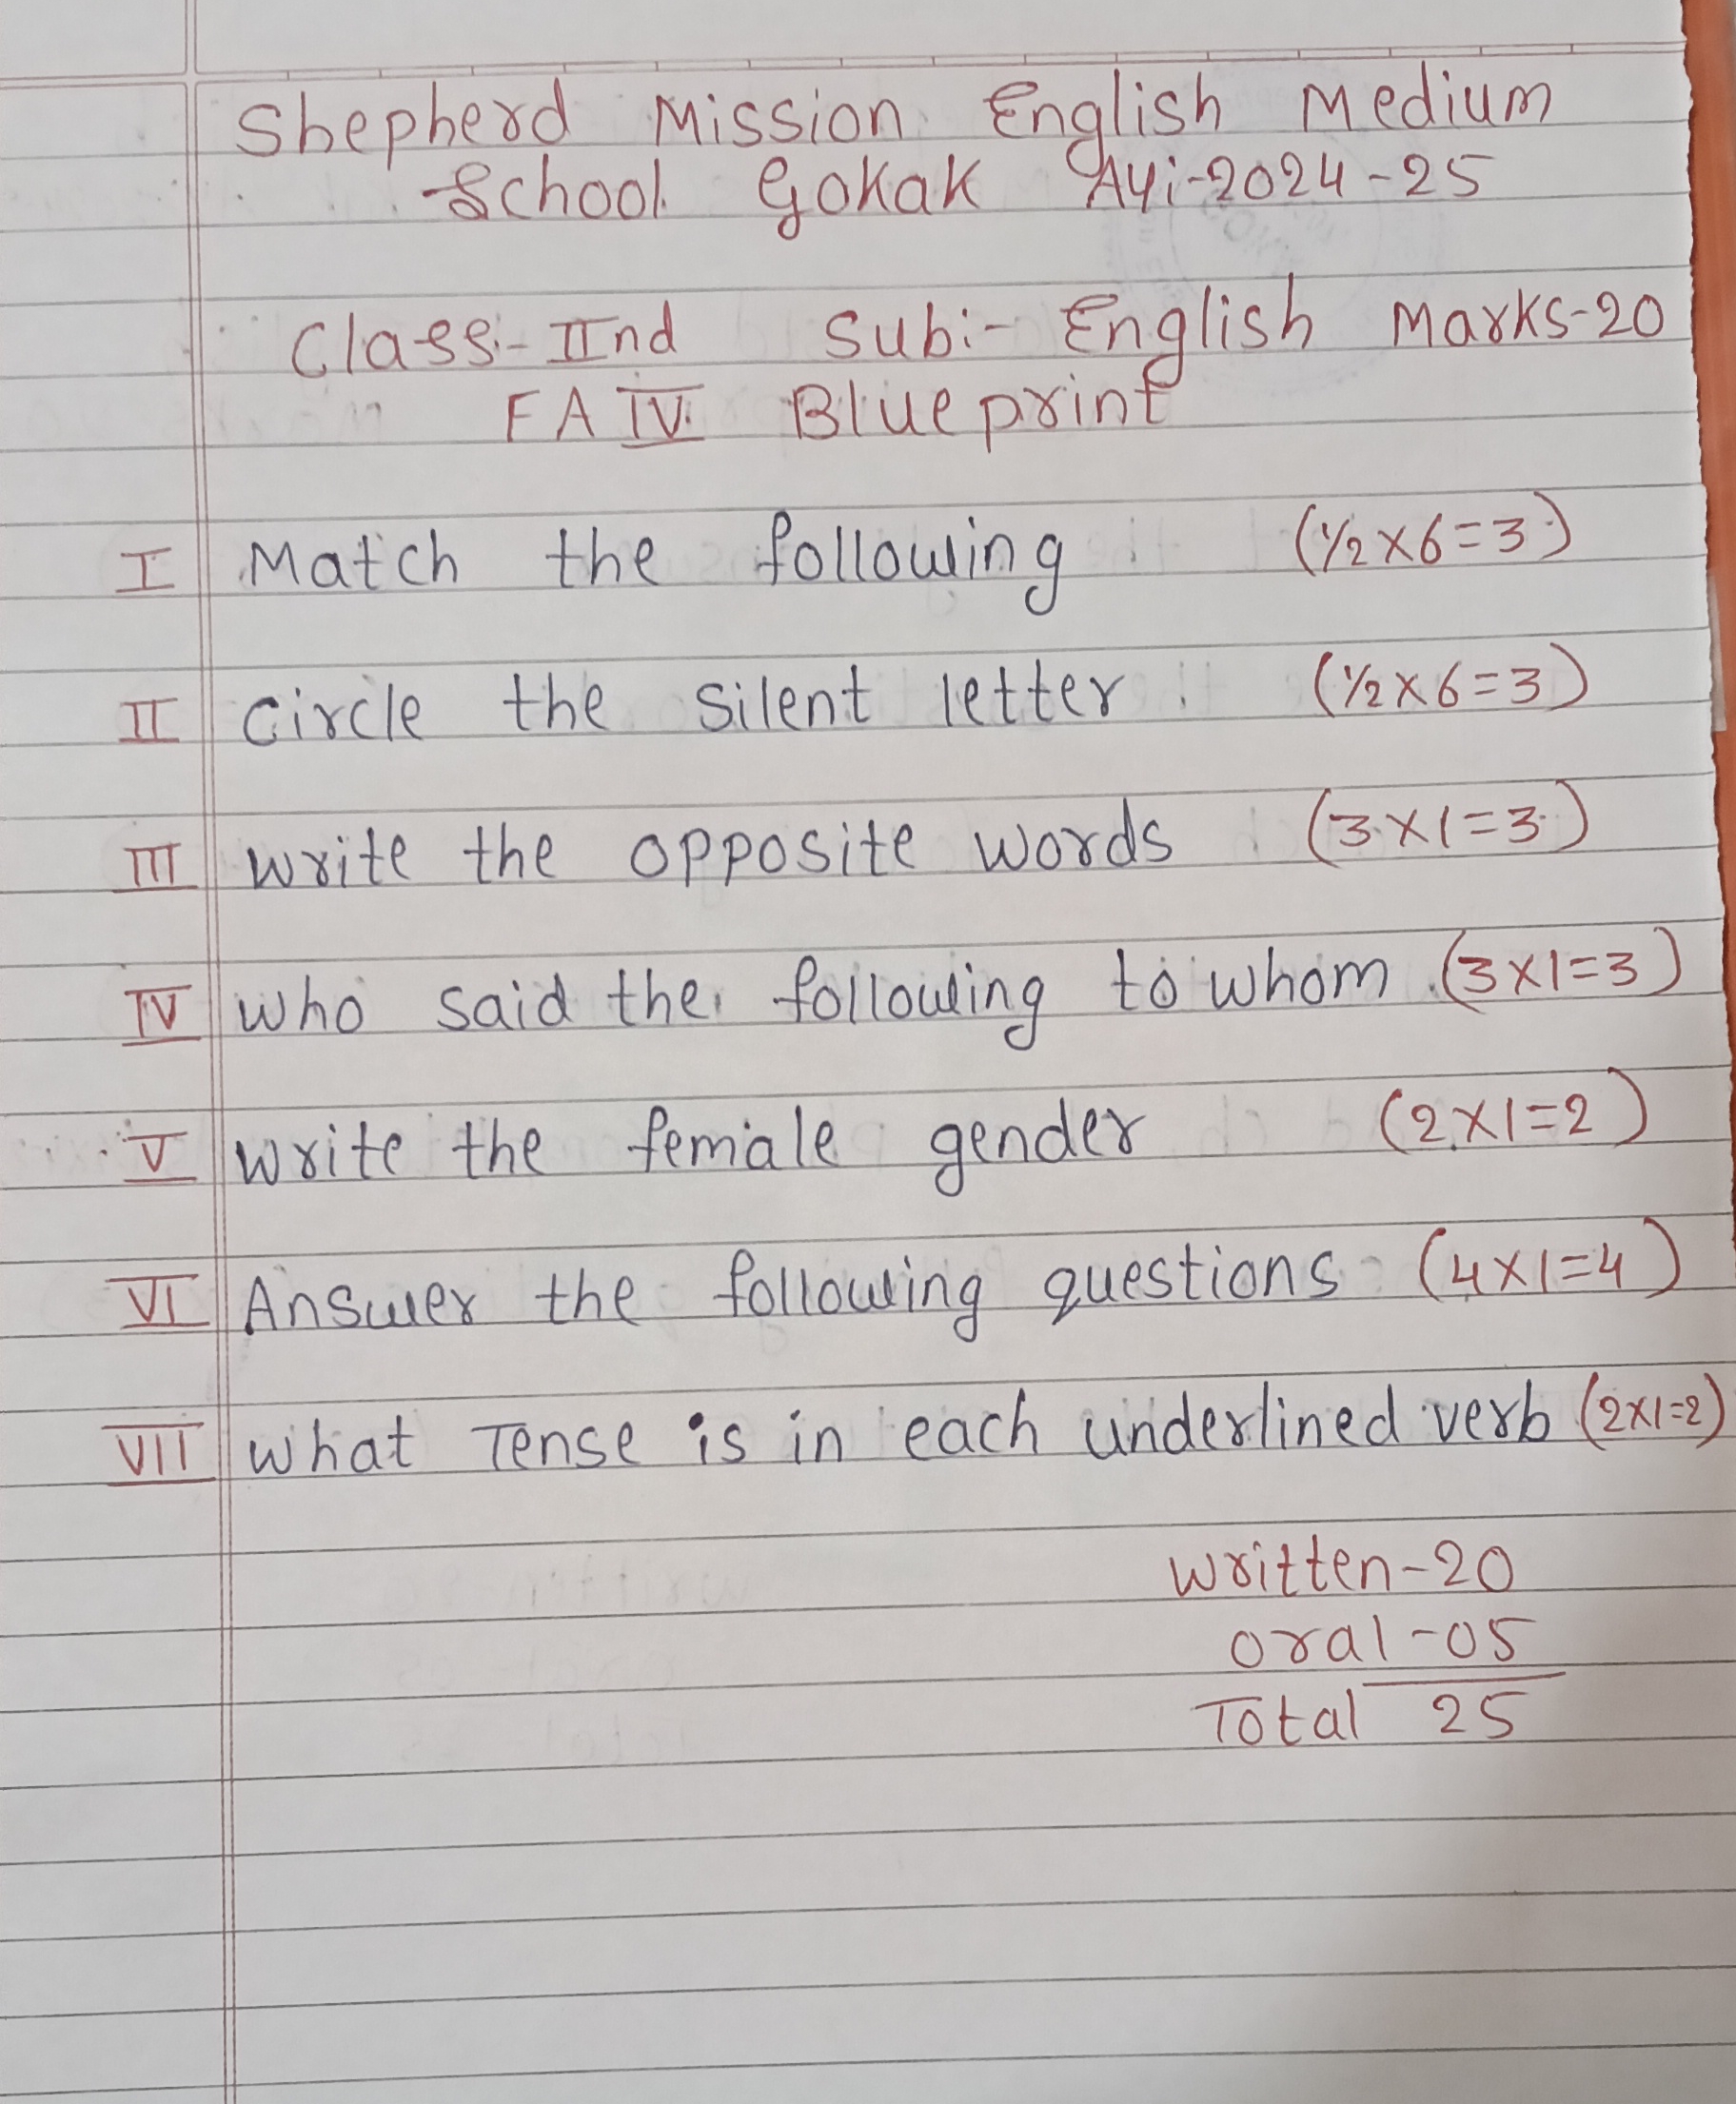 Shepherd Mission English Medium
School Gokak Ayi-2024-25
Class:- IInd Sub:- English Marks-20
FA IV Blueprint
I Match the following (½×6=3)
II Circle the silent letter. (½×6=3)
III Write the opposite words (3×1=3)
IV Who said the following to whom (3×1=3)
V Write the female gender (2×1=2)
VI Answer the following questions (4×1=4)
VII What Tense is in each underlined verb (2×1=2)
Written-20
Oral-05
Total 25